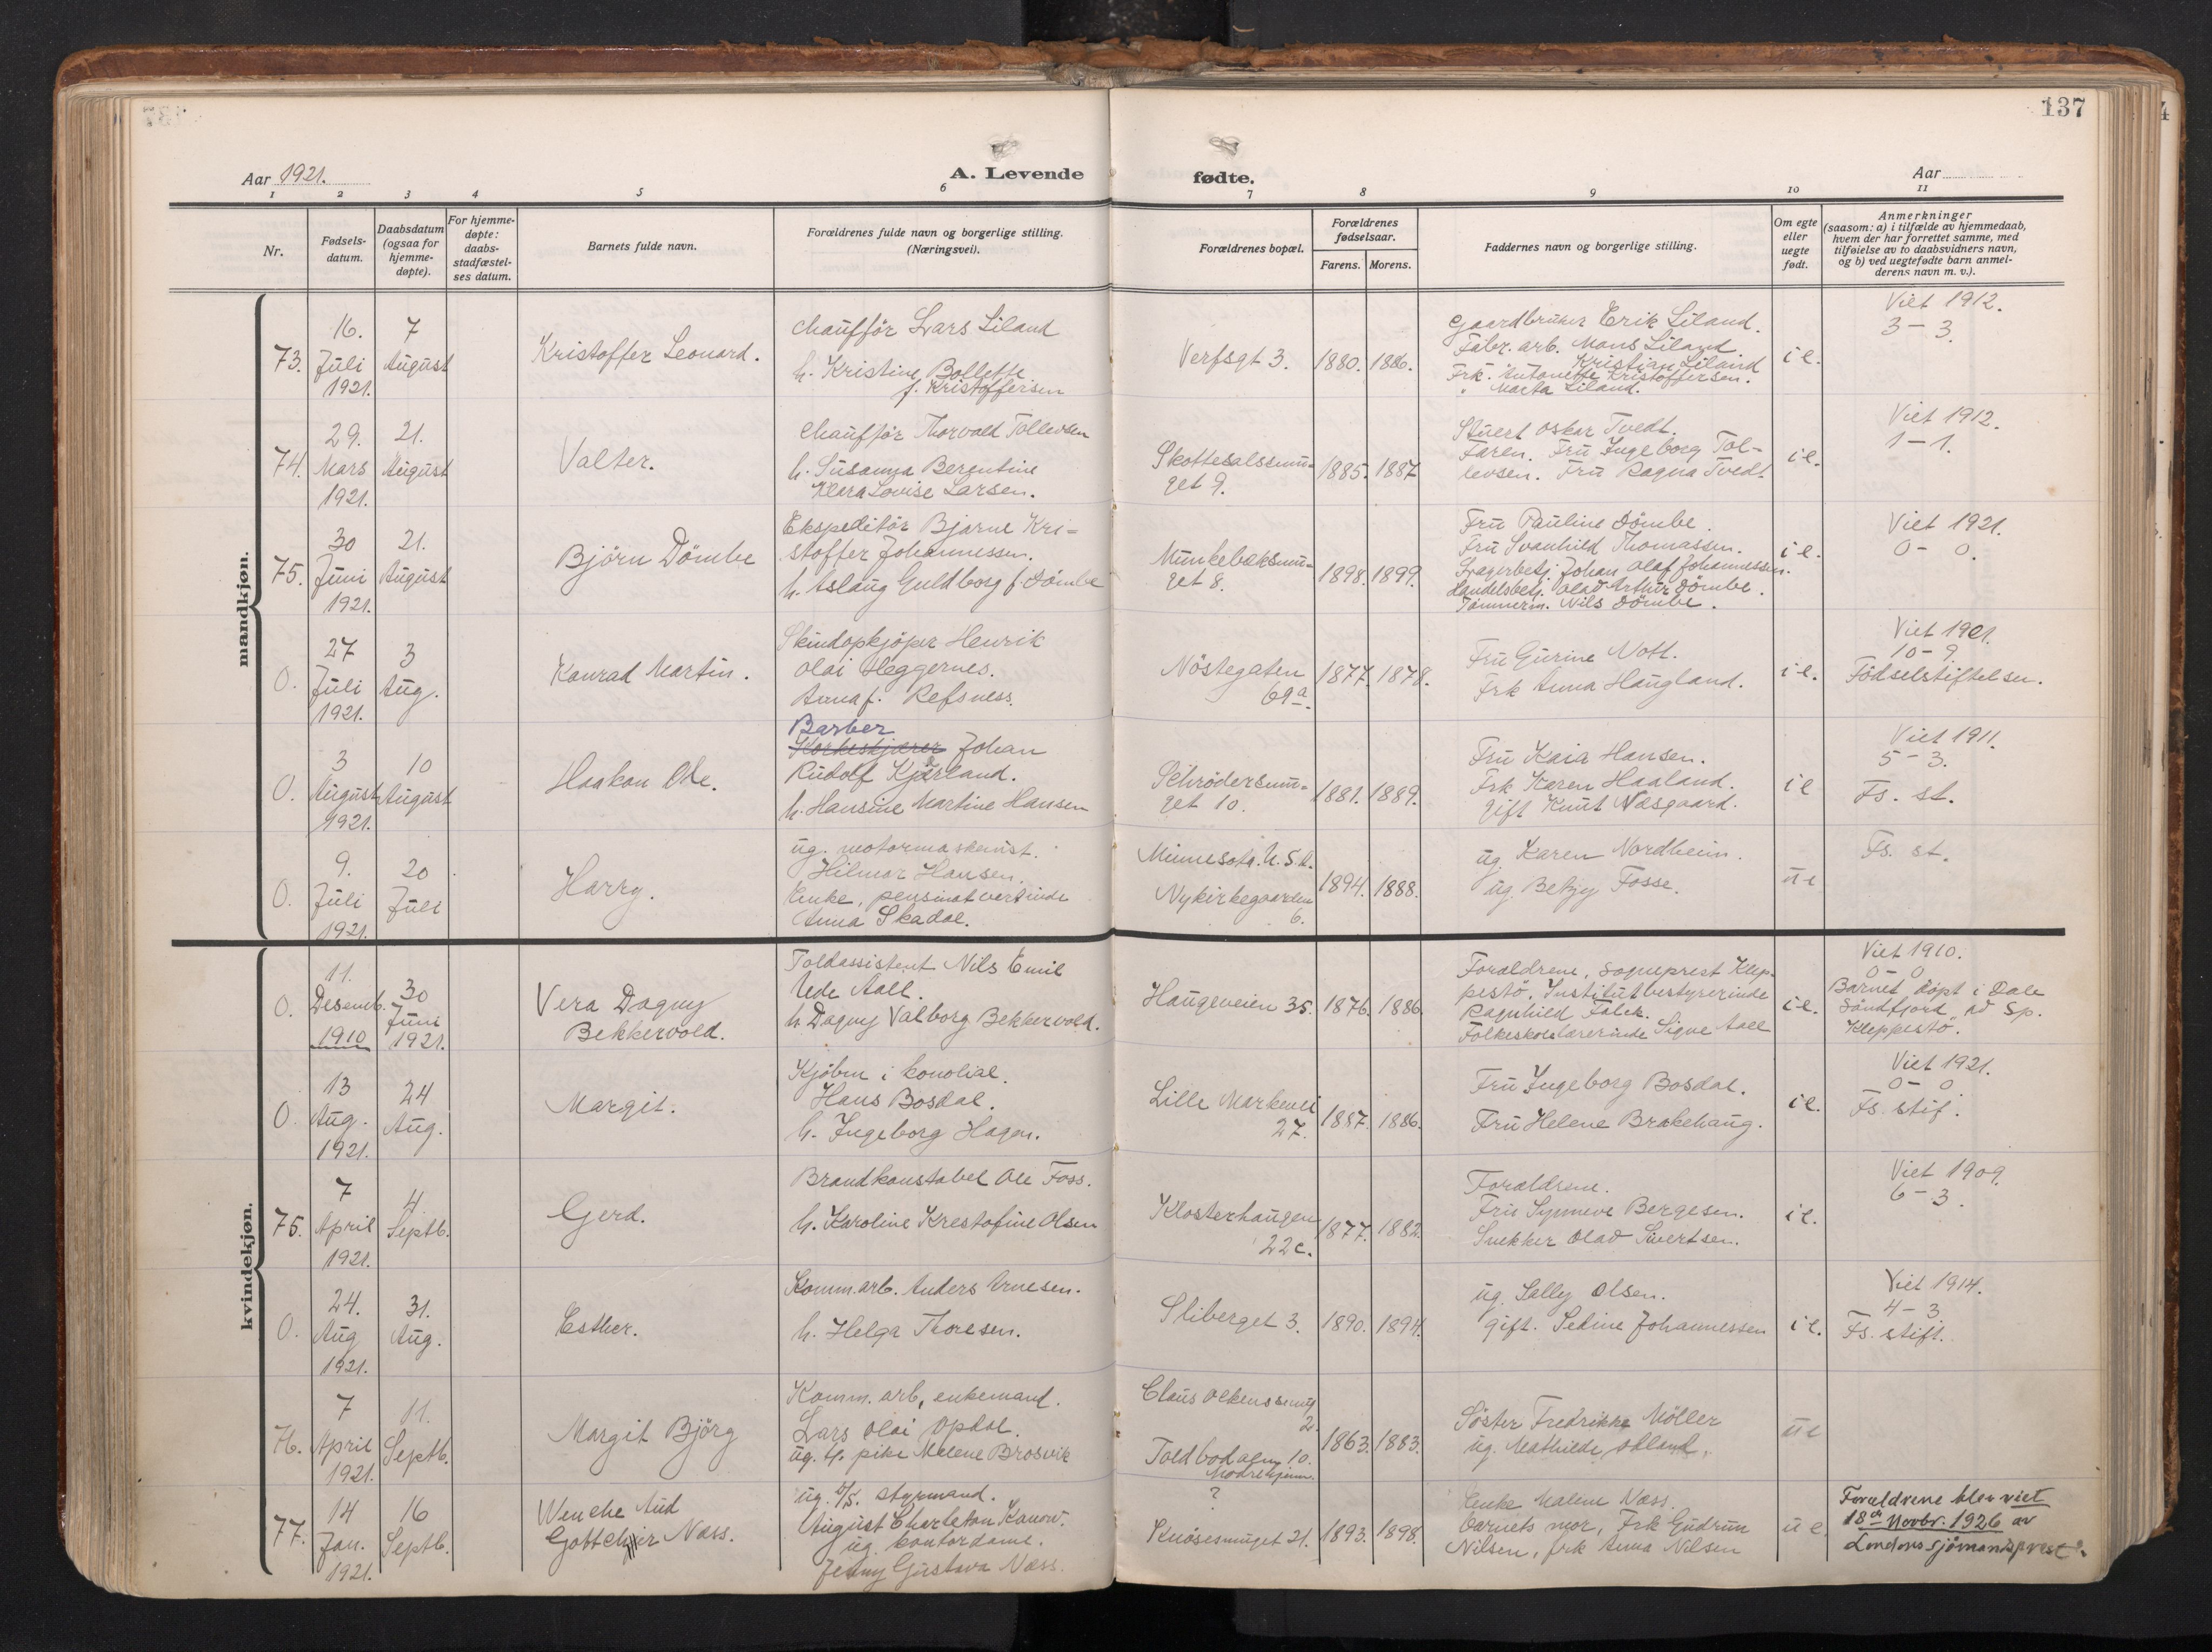 137
Aar 1921.
A. Levende
fødte.
Aar
1 2 3 4 5 6 7 8 9 10 11
Nr.
Fødsels-
datum.
Daabsdatum
(ogsaa for
hjemme-
døpte).
For hjemme-
døpte:
daabs-
stadfæstel-
ses datum.
Barnets fulde navn.
Forældrenes fulde navn og borgerlige stilling.
(Næringsvei).
Forældrenes bopæl.
Forældrenes
fødselsaar.
Farens. Morens.
Faddernes navn og borgerlige stilling.
Om egte
eller
uegte
født.
Anmerkninger
(saasom: a) i tilfælde av hjemmedaab,
hvem der har forrettet samme, med
tilføielse av to daabsvidners navn,
og b) ved uegtefødte barn anmel-
derens navn m. v.).
mandkjøn.
73.
16.
Juli
1921.
7
August
Kristoffer Leonard.
Chauffør Lars Liland
h. Kristine Bollette
f. Kristoffersen
Verfsgt 3.
1880. 1886.
Gaardbruker Erik Liland.
Fabr. arb. Mons Liland
Kristian Liland
Frk. Antonette Kristoffersen.
" Marta Liland.
i e.
Viet 1912.
3 – 3.
74.
29.
Mars
1921.
21.
August
Valter.
Chauffør Thorvald Tollevsen
h. Susanna Berentine
Klara Lovise Larsen.
Skottesalssmu-
get 9.
1885. 1887
Stuert Oskar Tvedt.
Faren. Fru Ingeborg Tol-
levsen. Fru Ragna Tvedt.
i e.
Viet 1912.
1 – 1.
75.
30
Juni
1921.
21.
August
Bjørn Dømbe
Ekspeditør Bjarne Kri-
stoffer Johannessen.
h. Aslaug Guldborg f. Dømbe
Munkebæksmu-
get 8.
1898. 1899.
Fru Pauline Dømbe.
Fru Svanhild Thomassen.
Lagerbetj. Johan Olaf Johannessen.
Handelsbetj. Olav Arthur Dømbe.
Tømmerm. Nils Dømbe.
i e.
Viet 1921.
0 – 0.
0.
27
Juli
1921.
3
Aug.
Konrad Martin.
Skindopkjøper Henrik
Olai Heggernes.
Anna f. Refsness.
Nøstegaten
69a.
1877. 1878.
Fru Gurine Nott.
Frk Anna Haugland.
i e.
Viet 1901.
10 – 9.
Fødselstiftelsen.
0.
3
August
1921.
10
August
Haakon Ole.
Barber
Korkeskjærer Johan
Rudolf Kjærland.
h. Hansine Martine Hansen
Schrødersmu-
get 10.
1881. 1889.
Fru Kaia Hansen.
Frk Karen Haaland.
gift Knut Næsgaard.
i e
Viet 1911.
5 – 3.
Fs. st.
0.
9.
Juli
1921.
20
Juli
Harry.
ug. motormaskinist.
Hilmar Hansen.
Enke, pensinatvertinde
Anna Skadal.
Minnesota. U.S.A.
Nykirkegaarden
6.
1894. 1888.
ug. Karen Nordheim.
ug. Betzy Fosse.
u e
Fs. st.
kvindekjøn.
0.
11.
Desemb.
1910
30
Juni
1921.
Vera Dagny
Bekkervold.
Toldassistent Nils Emil
Uede Aall.
h. Dagny Valborg Bekkervold.
Haugeveien 35.
1876. 1886.
Forældrene, Sogneprest Klep-
pestø. Institutbestyrerinde
Ragnhild Falck.
Folkeskolelærerinde Signe Aall
i e.
Viet 1910.
0 – 0
Barnet døpt i Dale
Søndfjord av Sp.
Kleppestø.
0.
13
Aug.
1921.
24
Aug.
Margit.
Kjøbm i konolial.
Hans Bosdal.
h. Ingeborg Hagen.
Lille Markevei
27.
1887. 1886.
Fru Ingeborg Bosdal.
Fru Helene Brakehaug.
i e.
Viet 1921.
0 – 0
Fs. stif.
75.
7
April
1921.
4
Septb.
Gerd.
Brandkonstabel Ole Foss.
h. Karoline Krestofine Olsen
Klosterhaugen
22c.
1877. 1882.
Forældrene.
Fru Synneve Bergesen.
Snekker Olav Sivertsen.
i e.
Viet 1909.
6 – 3.
0.
24.
Aug
1921.
31.
Aug.
Esther.
Komm.arb. Anders Arnesen.
h. Helga Thoresen.
Sliberget 3.
1890. 1894.
ug. Sally Olsen.
gift. Sedine Johannessen
i e.
Viet 1914.
4 – 3
Fs. stift.
76.
7
April
1921.
11.
Septb.
Margit Bjørg
Komm. arb, enkemand.
Lars Olai Opdal.
ug. tj. pike Malene Brosvik
Claus Ockenssmug
2.
Toldbodalm. 10.
Mødrehjem.
1863. 1883.
Søster Fredrikke Møller
ug. Mathilde Aaland.
u e
77.
14
Jan.
1921.
16
Septb.
Wenche Aud
Gottchir Næss.
ug. d/s. styrmand.
August Charleton Kanow.
ug. kontordame.
Jenny Gustava Næss.
?
Knøsesmuget 21.
1893. 1898.
Enke Malene Næss.
Barnets mor, Frk Gudrun
Nilsen, frk Anna Nilsen
u e.
Forældrene blev viet
18de Novbr. 1926 av
Londons sjømandsprest.